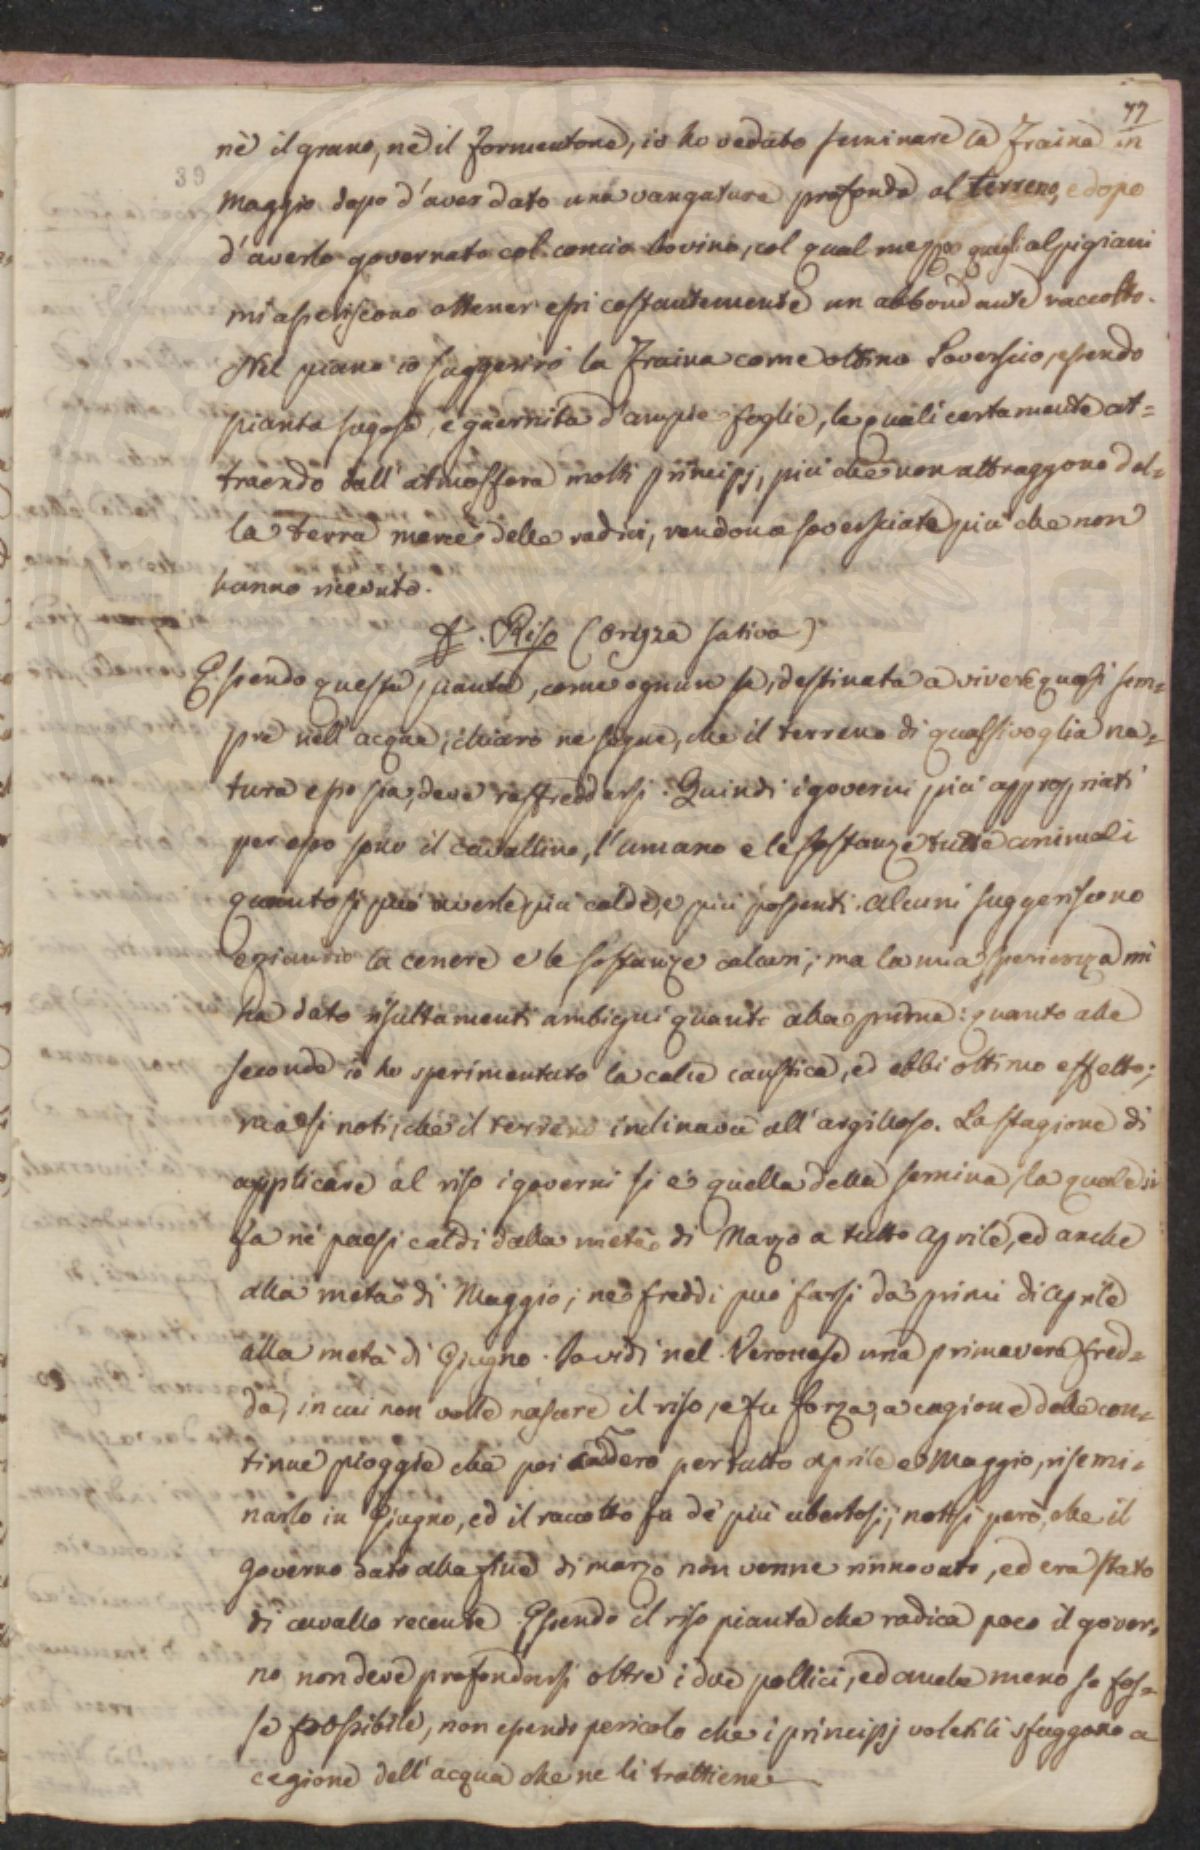 77
nè il grano, nè il formentone, io ho veduto seminare la Fraina in
Maggio dopo d'aver dato una vangatura profonda al terreno, e dopo
d'averlo governato col concio bovino, col qual mezzo quegli alpigiani
mi asseriscono ottener essi costantemente un abbondante raccolto.
Nel piano io suggerirò la Fraina come ottimo Soverscio, essendo
pianta sugosa, e guernita d'ampie foglie, le quali certamente at=
traendo dall'atmosfera molti principj, più che non attraggono del=
la terra mercè delle radici, rendono soversciate più che non
hanno ricevuto.
Riso (Oriza sativa)
Essendo questa pianta, come ognun sa, destinata a vivere quasi sem=
pre nell'acqua, chiaro ne segue, che il terreno di qualsivoglia na=
tura esso sia, deve raffreddarsi. Quindi i governi più appropriati
per esso sono il cavallino, l'umano e le sostanze tutte animali
quanto si può averle più calde, e più possenti. Alcuni suggeriscono
eziandio la cenere e le sostanze calcari; ma la mia sperienza mi
ha dato risultamenti ambigui quanto alla prima: quanto alle
seconde io ho sperimentato la calce caustica, ed ebbi ottimo effetto;
ma si noti, che il terreno inclinava all'argilloso. La stagione di
applicare al riso i governi si è quella della semina, la quale si
fa ne' paesi caldi dalla metà di Marzo a tutto Aprile, ed anche
alla metà di Maggio; ne' freddi può farsi da' primi di Aprile
alla metà di Giugno. Io vidi nel Veronese una primavera fred=
da, in cui non volle nascere il riso, e fu forza, a cagione delle con=
tinue pioggie che poi caddero per tutto Aprile e Maggio, risemi=
narlo in Giugno, ed il raccolto fu de' più ubertosi; notisi però, che il
governo dato alla fine di marzo non venne rinnovato, ed era stato
di cavallo recente. Essendo il riso pianta che radica poco il gover=
no non deve profondarsi oltre i due pollici, ed anche meno se fos=
se possibile, non essendo pericolo che i principj volatili sfuggano a
cagione dell'acqua che ne li trattiene